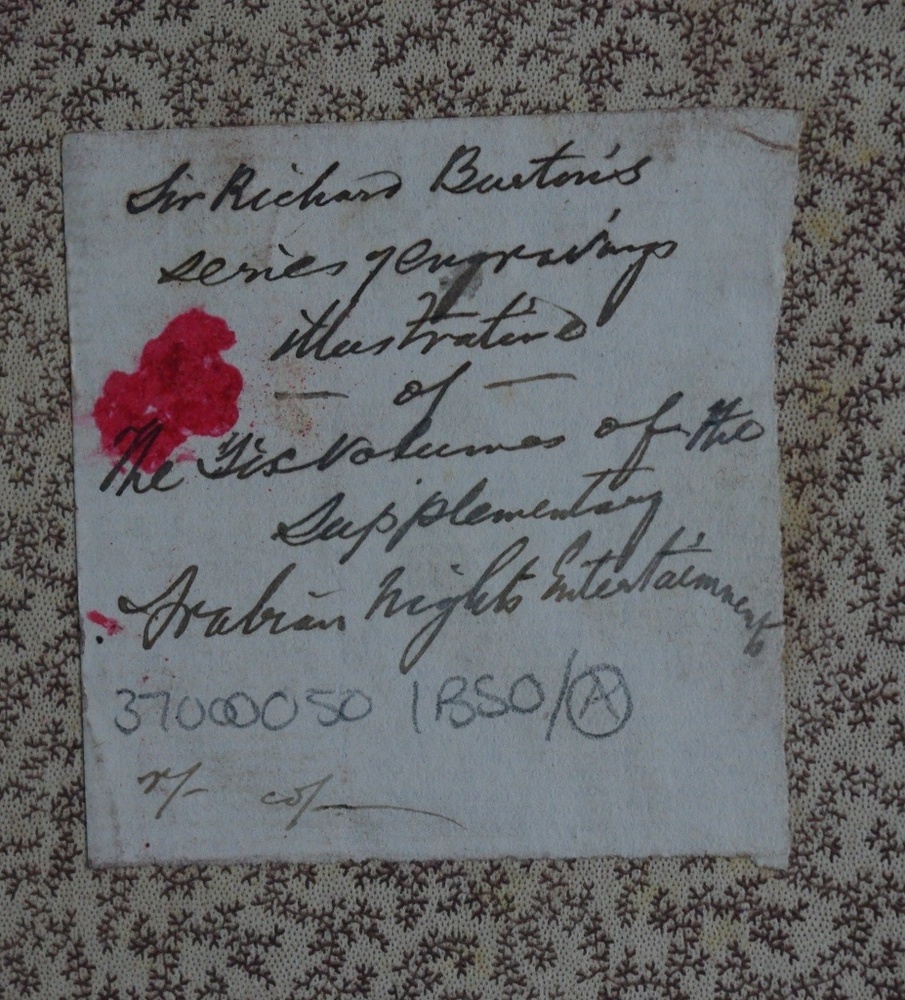 Sir Richard Burton's
series of engravings
illustrative
— of —
The Six Volumes of the
Supplementary
Arabian Nights Entertainments
37000050 1BSO/Ⓐ